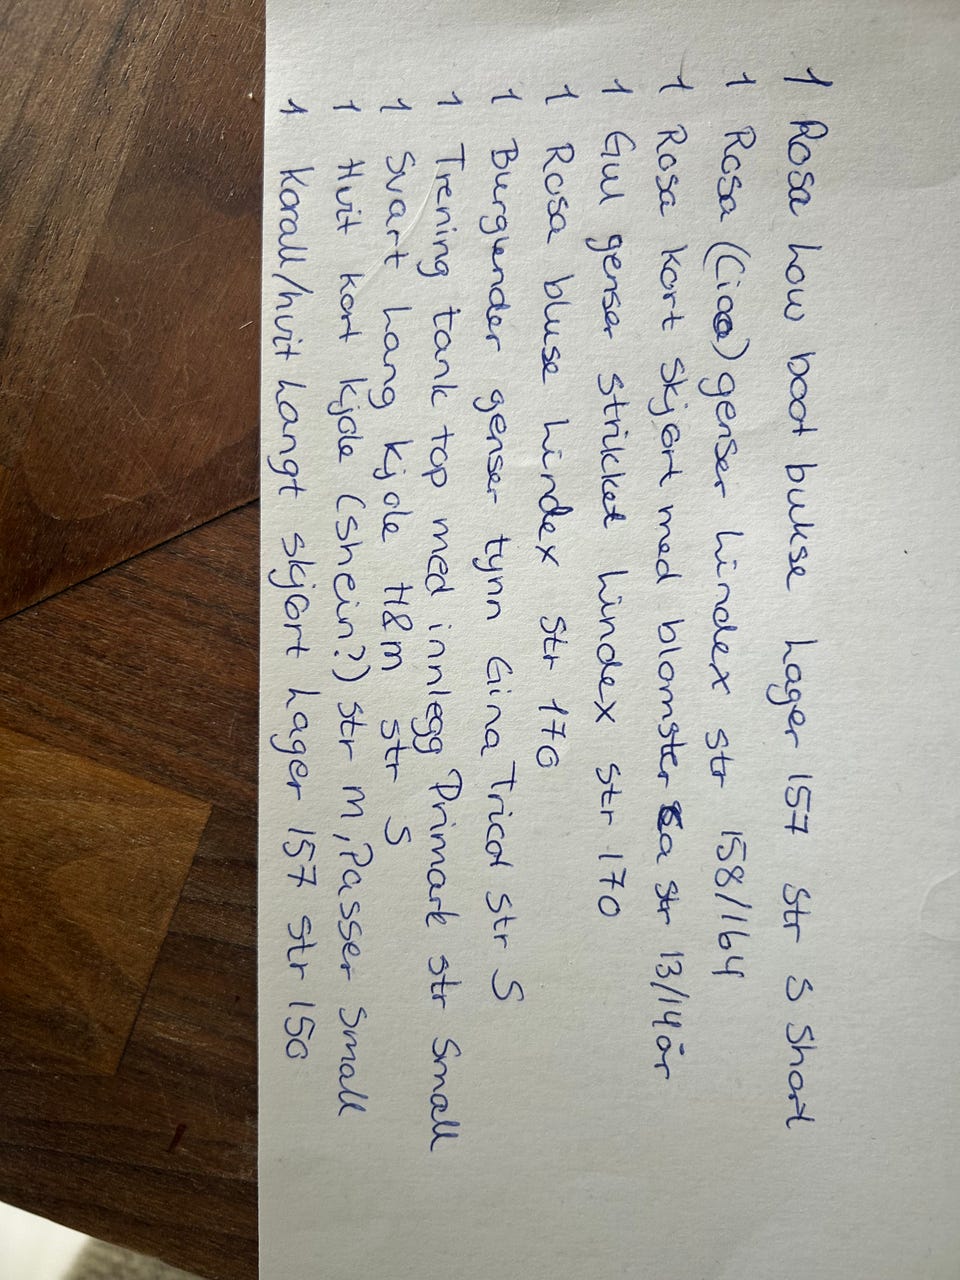 1 Rosa Low boot bukse Lager 157 str S Short
1 Rosa (Ciao) genser Lindex str 158/164
1 Rosa kort skjørt med blomster str 13/14 år
1 Gul genser strikket Lindex str 170
1 Rosa bluse Lindex str 170
1 Burgunder genser tynn Gina Tricot str S
1 Trening tank top med innlegg Primark str Small
1 Svart Lang kjole H&M str S
1 Hvit kort kjole (Shein?) str M, Passer Small
1 Korall/hvit Langt skjørt Lager 157 str 150